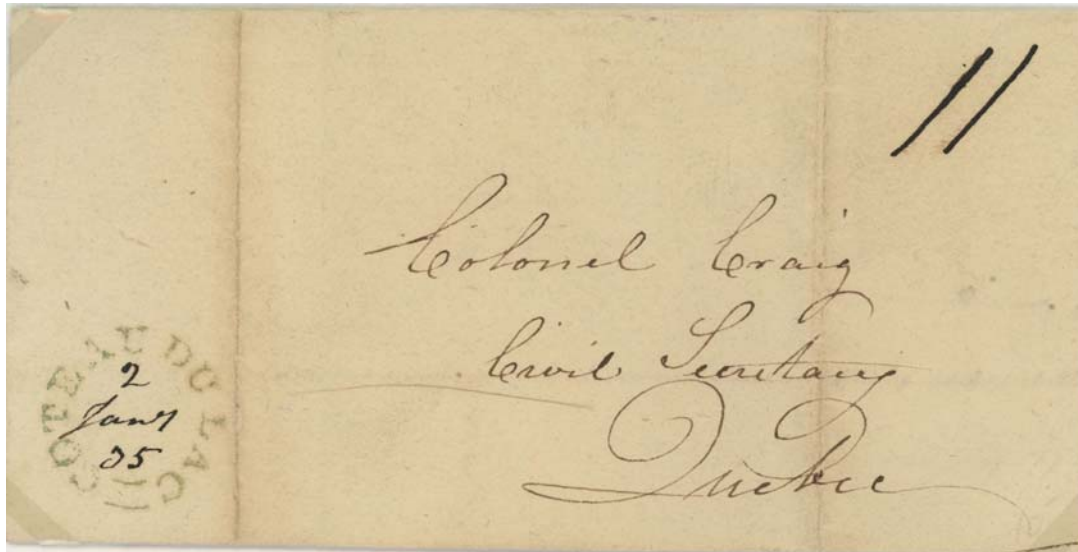 11
Colonel Craig
Civil Secretary
Quebec
COTEAU DU LAC
2
Jany
35